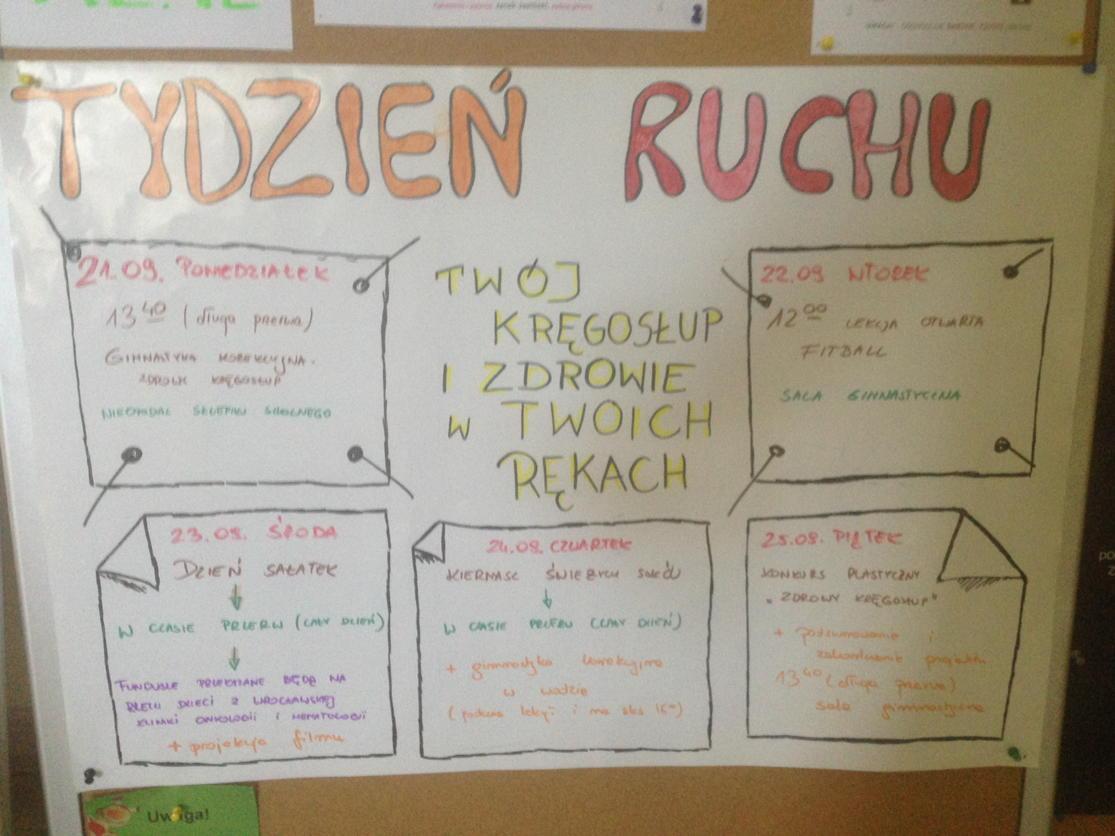 TYDZIEŃ RUCHU
21.09. PONIEDZIAŁEK
13 40 (długa przerwa)
GIMNASTYKA KOREKCYJNA.
ZDROWY KRĘGOSŁUP
NIEOPODAL SKLEPIKU SZKOLNEGO
TWÓJ
KRĘGOSŁUP
I ZDROWIE
W TWOICH
RĘKACH
22.09 WTOREK
12 00 LEKCJA OTWARTA
FITBALL
SALA GIMNASTYCZNA
23.09. ŚRODA
DZIEŃ SAŁATEK
W CZASIE PRZERW (CAŁY DZIEŃ)
FUNDUSZE PRZEKAZANE BĘDĄ NA
RZECZ DZIECI Z WROCŁAWSKIEJ
KLINIKI ONKOLOGII I HEMATOLOGII
+ projekcja filmu
24.09. CZWARTEK
KIERMASZ ŚWIEŻYCH SOKÓW
W CZASIE PRZERW (CAŁY DZIEŃ)
+ gimnastyka korekcyjna
w wodzie
(podczas lekcji i na sks
25.09. PIĄTEK
KONKURS PLASTYCZNY
"ZDROWY KRĘGOSŁUP"
+ podsumowanie i
zakończenie projektu
13 40 (długa przerwa)
sala gimnastyczna
Uwaga!